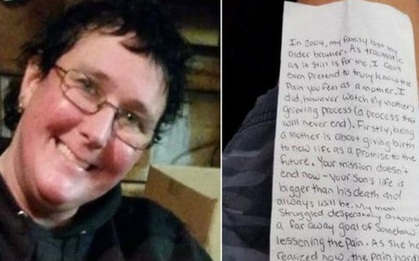 In 2004, my family lost my
older brother. As traumatic
as it still is for me, I can't
even pretend to truly know the
pain you feel as a mother. I
did, however watch my mother's
grieving process (a process that
will never end). Firstly, being
a mother is above giving birth
to new life as a promise to the
future. Your mission doesn't
end now - your son's life is
bigger than his death and
always will be. My mom
struggled desperately
a far away goal of somehow
lessening the pain. As she has
realized now, the pain